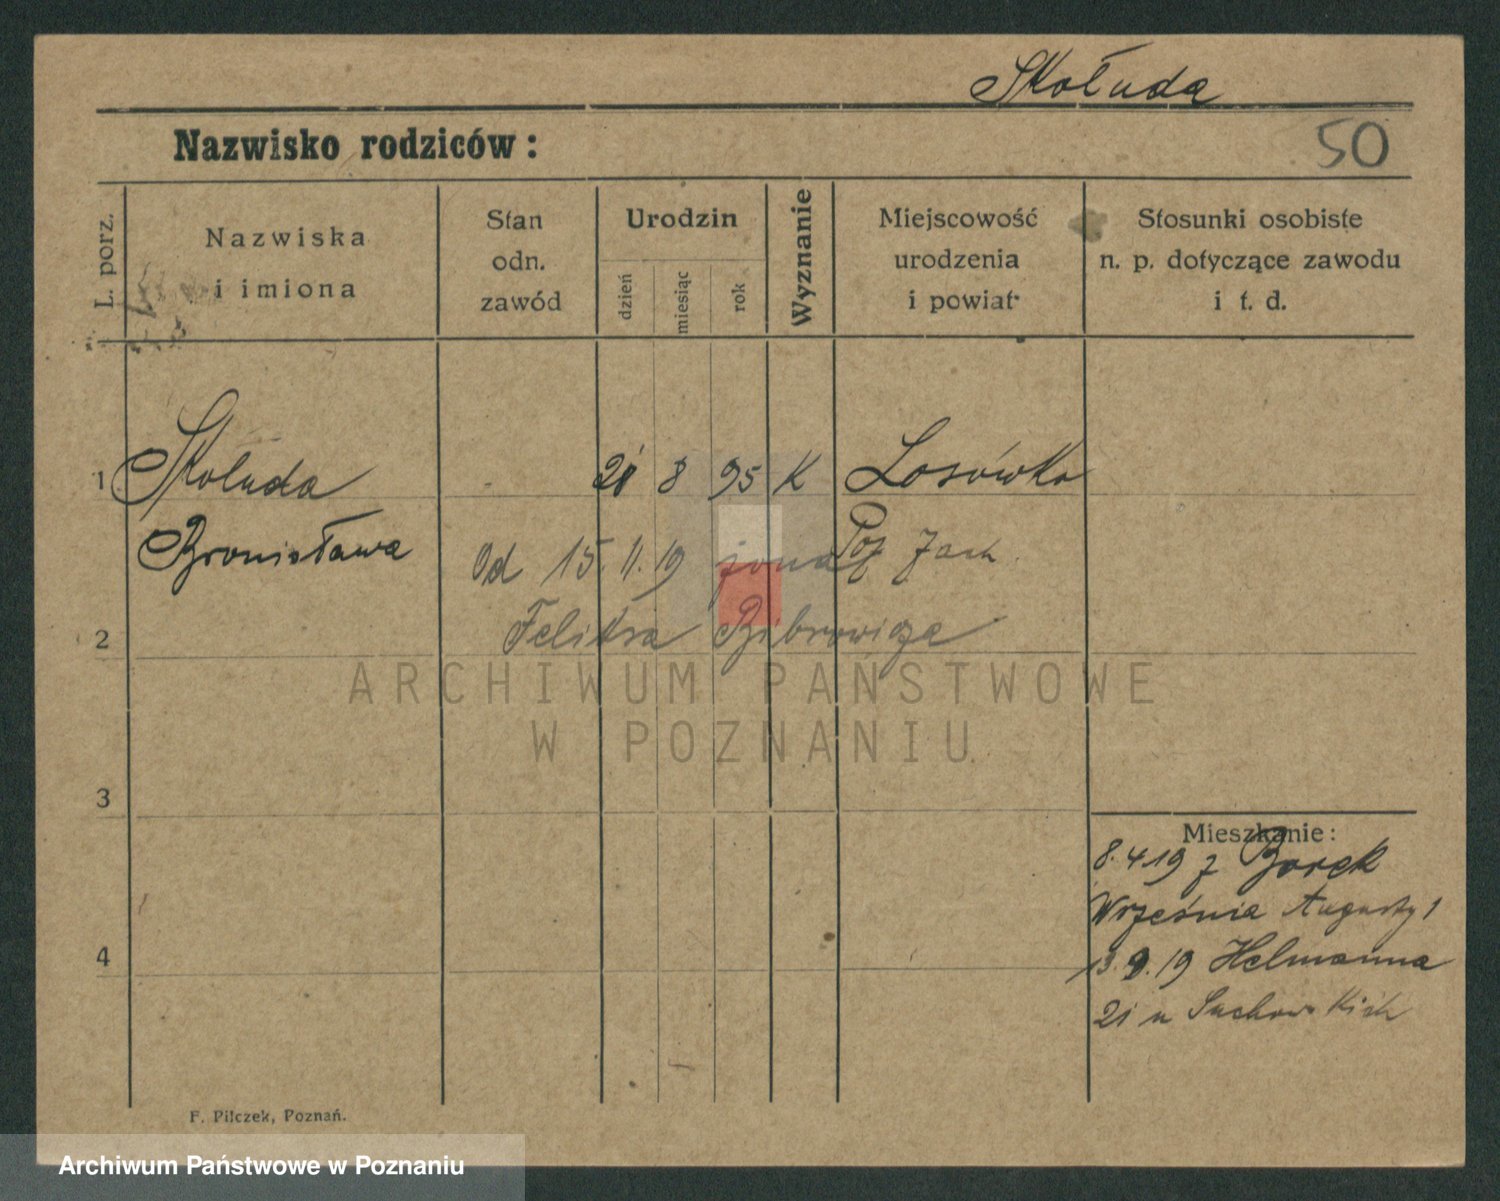 Skołuda
Nazwisko rodziców:
50
L. porz.
Nazwiska
i imiona
Stan
odn.
zawód
Urodzin
dzień
miesiąc
rok
Wyznanie
Miejscowość
urodzenia
i powiat
Stosunki osobiste
n. p. dotyczące zawodu
i t. d.
1 Skołuda 21 8 95 K Losówko
Bronisława Poz Zach.
Od 15.11.19 żona
2 Feliksa Bibrowicza
ARCHIWUM PAŃSTWOWE
W POZNANIU
3
Mieszkanie:
8.4.19 z Borek
Września Augusty 1
4
13.9.19 Helmanna
21 u Suchowskich
F. Pilczek, Poznań.
Archiwum Państwowe w Poznaniu